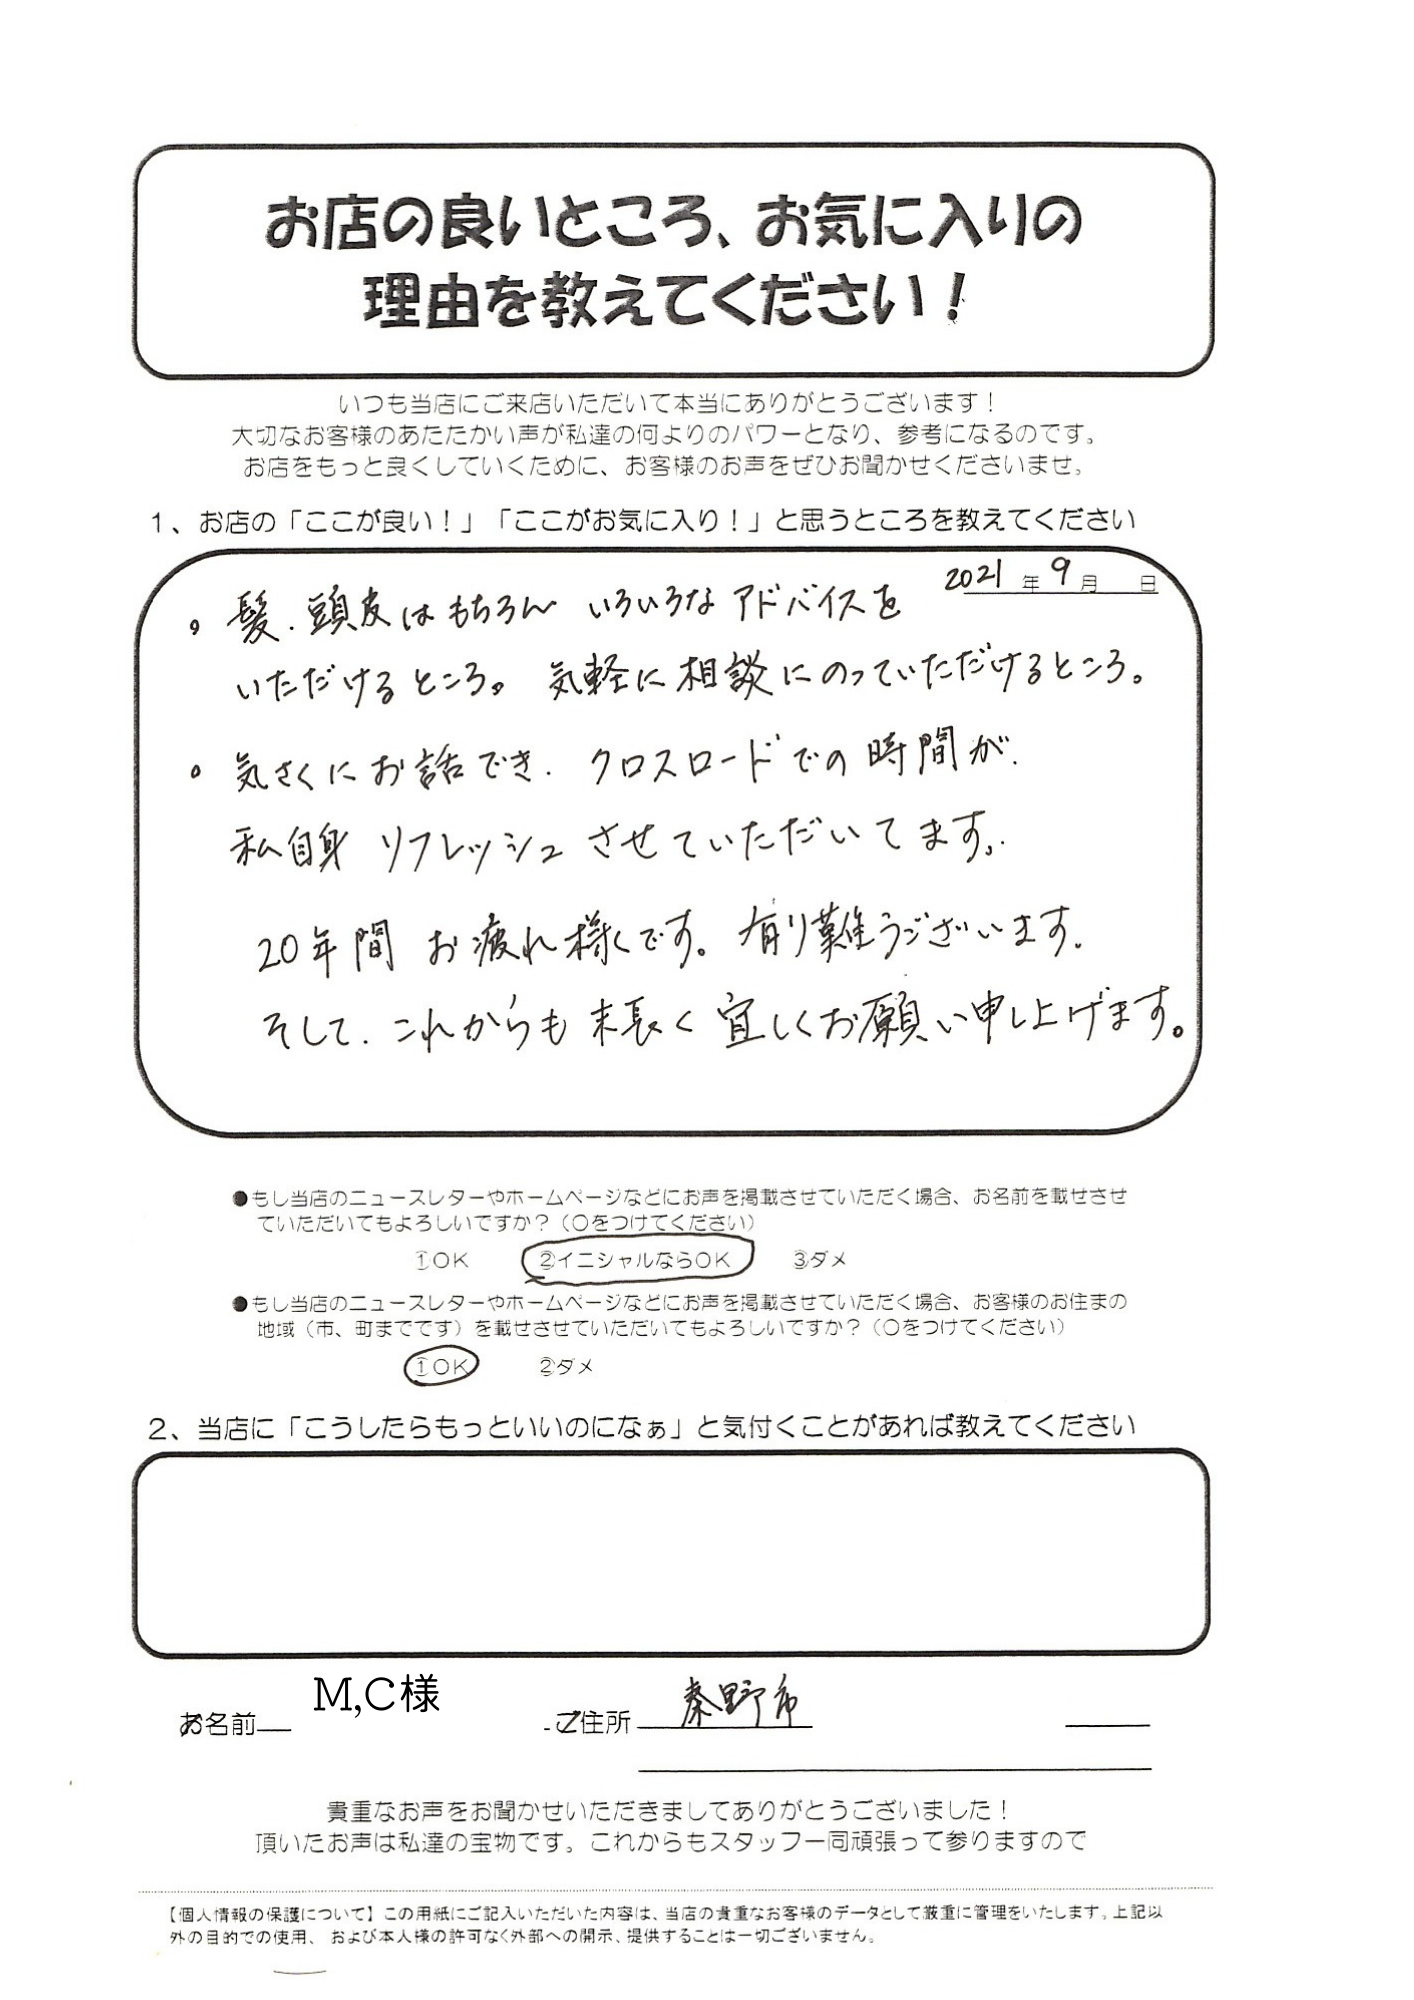 お店の良いところ、お気に入りの
理由を教えてください!
いつも当店にご来店いただいて本当にありがとうございます!
大切なお客様のあたたかい声が私達の何よりのパワーとなり、参考になるのです。
お店をもっと良くしていくために、お客様のお声をぜひお聞かせくださいませ。
1、お店の「ここが良い!」「ここがお気に入り!」と思うところを教えてください
2021 年 9 月 日
。髪.頭皮はもちろん いろいろな アドバイスを
いただけるところ。 気軽に相談にのっていただけるところ。
。気さくにお話でき. クロスロードでの時間が.
私自身 リフレッシュ させていただいてます。
20年間 お疲れ様です。有り難うございます。
そして. これからも 末長く 宜しくお願い申し上げます。
●もし当店のニュースレターやホームページなどにお声を掲載させていただく場合、お名前を載せさせ
ていただいてもよろしいですか?(○をつけてください)
①OK ②イニシャルならOK ③ダメ
●もし当店のニュースレターやホームページなどにお声を掲載させていただく場合、お客様のお住まの
地域(市、町までです)を載せさせていただいてもよろしいですか?(○をつけてください)
①OK ②ダメ
2、当店に「こうしたらもっといいのになぁ」と気付くことがあれば教えてください
お名前 M,C様 ご住所 秦野市
貴重なお声をお聞かせいただきましてありがとうございました!
頂いたお声は私達の宝物です。これからもスタッフ一同頑張って参りますので
【個人情報の保護について】この用紙にご記入いただいた内容は、当店の貴重なお客様のデータとして厳重に管理をいたします。上記以
外の目的での使用、および本人様の許可なく外部への開示、提供することは一切ございません。